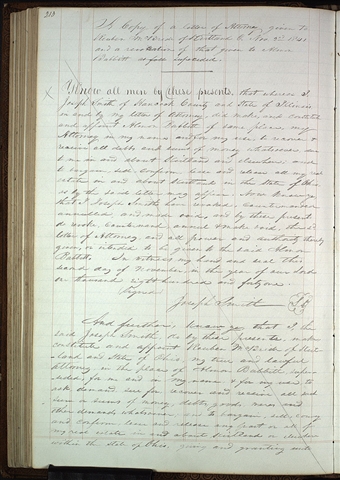 A Copy of a letter of Attorney, given to
Reuben McBride of Kirtland O. Nov. 2nd 1841
and a revocation of that given to Almon
Babbitt so full superceded.
Know all men by these presents, that whereas I
Joseph Smith of Hancock County and State of Illinois
in and by my letter of Attorney, did make, and constitute
and appoint Almon Babbitt
Attorney in my name
receive all debts and sums of money
to me in and about Kirtland and elsewhere and
to bargain, sell, confirm, lease and release all my real
estate in and about Kirtland in the State of Ohio
as by the said letter may appear. Now know ye
that I Joseph Smith have revoked, countermanded
annulled and made void, and by these presents
do revoke, countermand, annul & make void, the s.d
letter of Attorney and all power and authority thereby
given, or intended to be given to the said Almon
Babbitt. In witness my hand and seal this
day of November, in the year of our Lord
one thousand eight hundred and forty one.
Signed
Joseph Smith
And furthermore, know ye, that I the
said Joseph Smith, do by these presents, make
constitute and appoint Reuben McBride of Kirt-
land and State of Ohio, my true and lawful
Attorney in the place of Almon Babbitt super-
ceded, for me and in my name & for my use, to
ask, demand, sue for, recover and receive all such
sum or sums of money, debts, goods, wares and
other demands whatsoever, and to bargain, sell, convey
and confirm, lease and release any part or all of
my real estate in and about Kirtland or elsewhere
within the State of Ohio, giving and granting unto